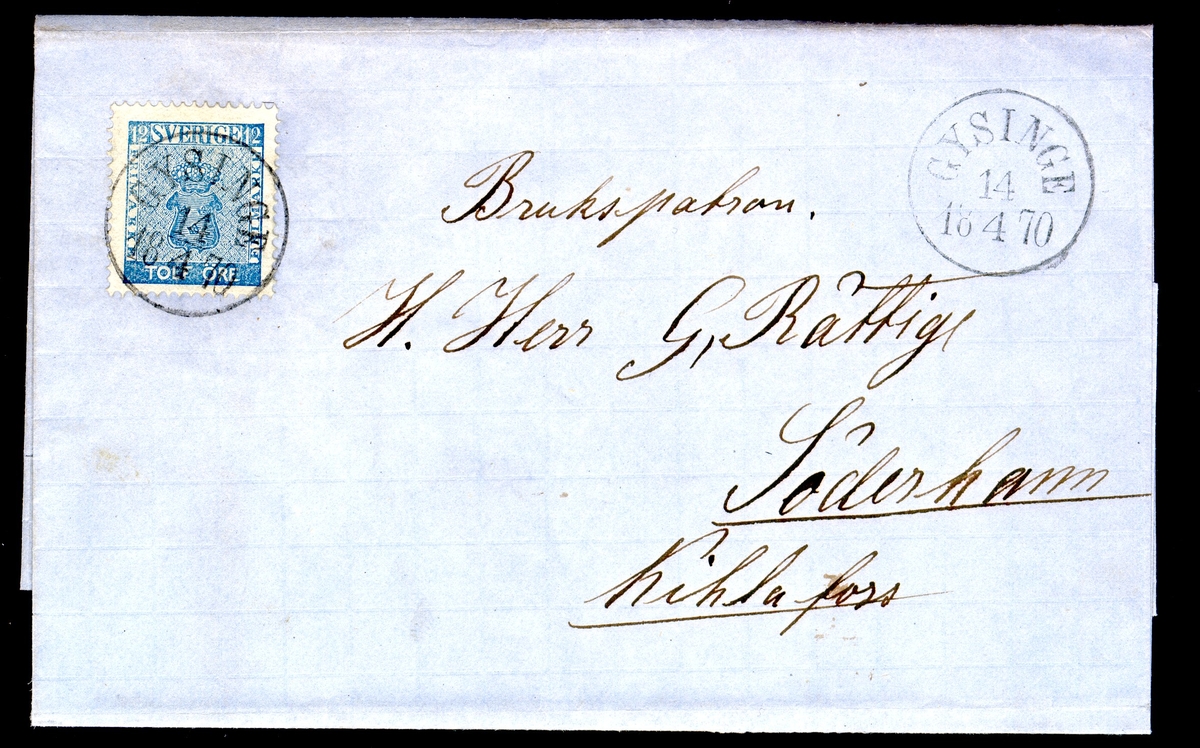 12 SVERIGE 12
TOLF ÖRE
GYSINGE
14
18 4 70
GYSINGE
14
18 4 70
Brukspatron.
H. Herr G, Rättige
Söderhamn
Kihlafors